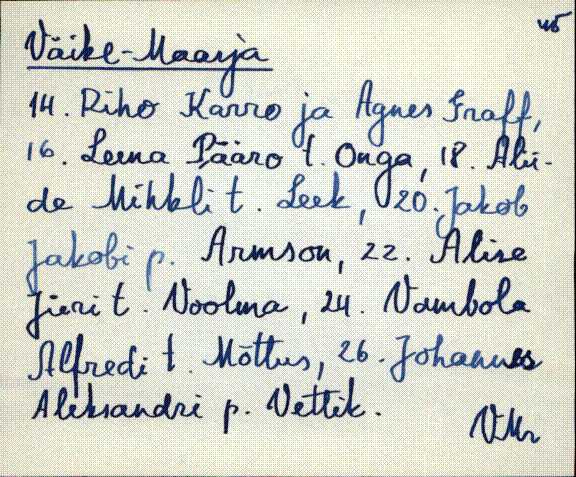 us
Väike-Maarja
14. Riho Karro ja Agnes Graff,
16. Leena Pääro t. Onga, 18. Alii-
de Mihkli t. Leek, 20. Jakob
Jakobi p. Armson, 22. Aliise
Jüri t. Noolma, 24. Vambola
Alfredi t. Mõttus, 26. Johannes
Aleksandri p. Vettik.
VMr